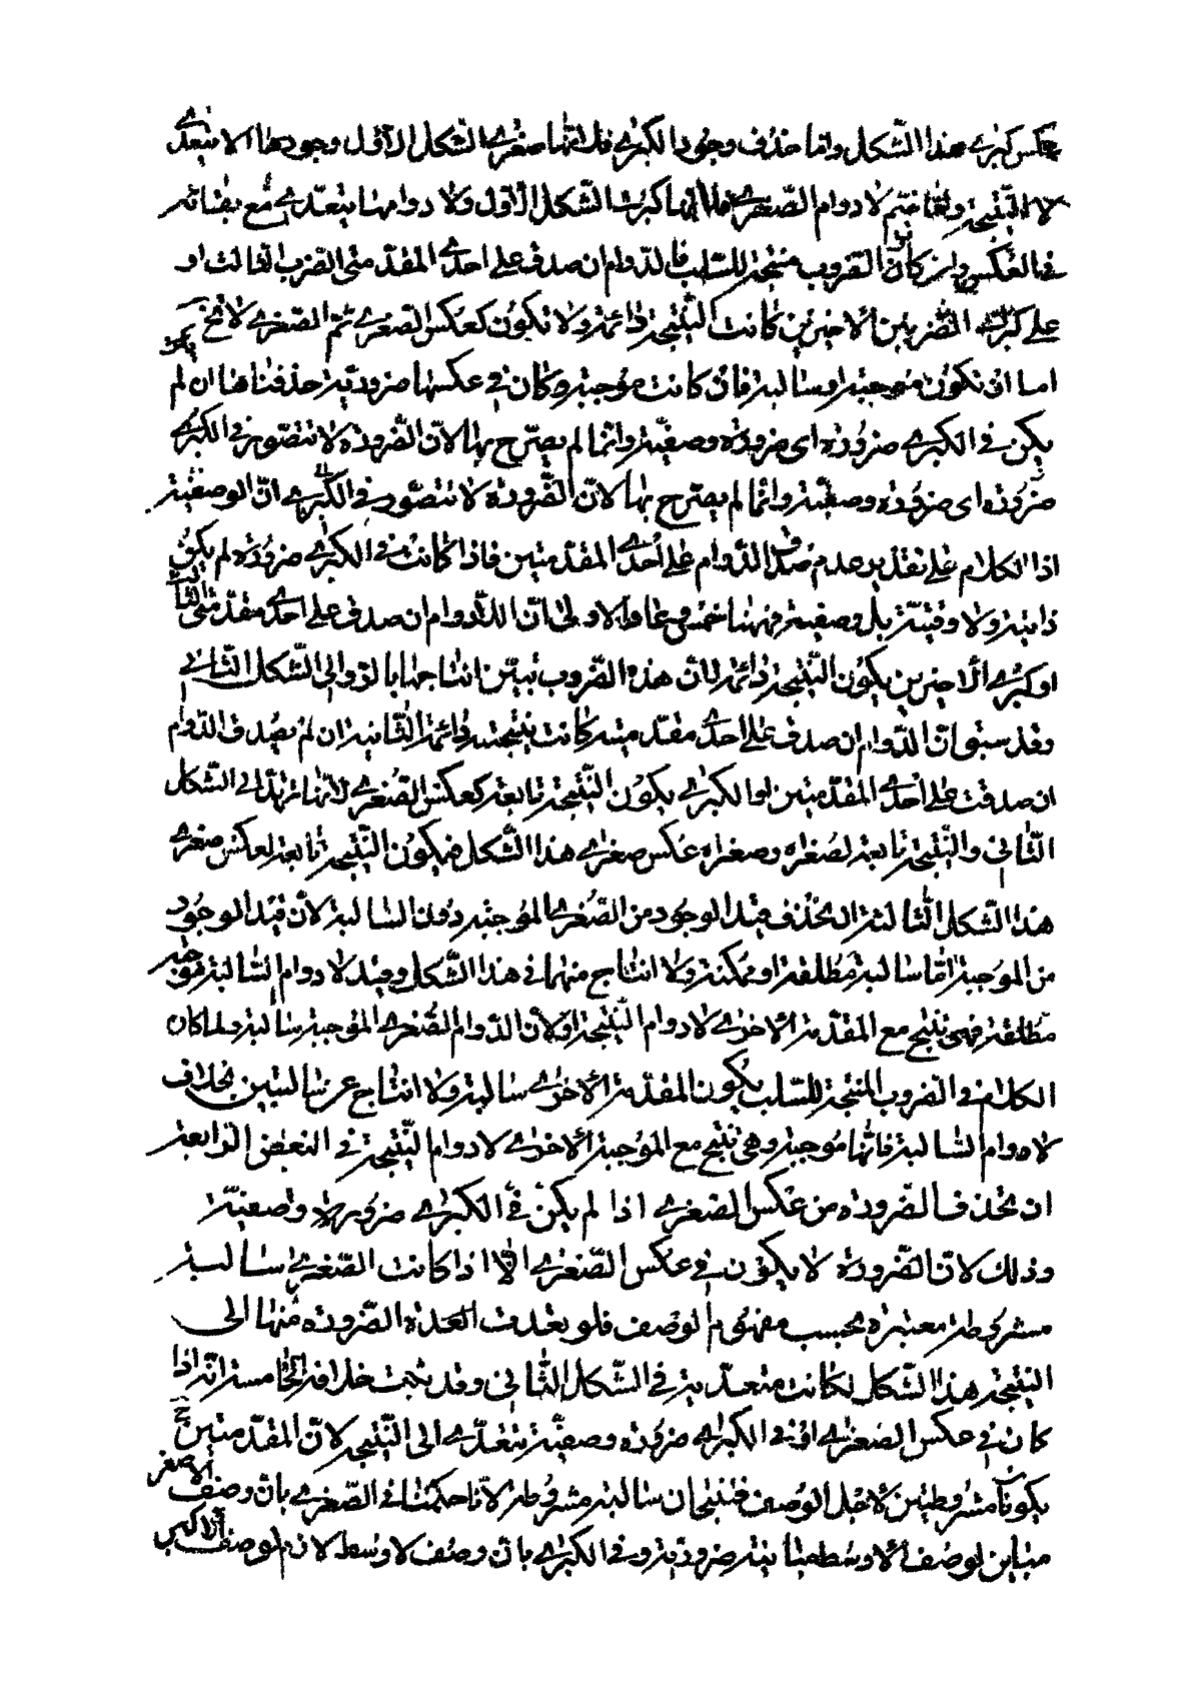 عكس كبرى هذا الشكل واما حذف وجود الكبرى فلانها صغرى الشكل الاول وجودها لا يتعدى
لا النتيجة ولا دوام الصغرى فلانها كبرى الشكل الاول ولا دوامها يتعدى مع بقائه
في العكس وان كان الضروب منتجة للسلب فالدوام ان صدق على احدى المقدمتى الضرب الثالث او
على كبرى الضربين الاخيرين كانت النتيجة دائمة ولا تكون كعكس الصغرى ثم الصغرى لا تخ
اما ان تكون موجبة او سالبة فان كانت موجبة وكان في عكسها ضرورية حذفناها ان لم
يكن في الكبرى ضرورة اى ضرورة وصفية وانما لم يصرح بها لان الضرورة لا تتصور في الكبرى
ضرورة اى ضرورة وصفية وانما لم يصرح بها لان الضرورة لا تتصور في الكبرى ان الوصفية
اذا الكلام على تقدير عدم صدق الدوام على احدى المقدمتين فاذا كانت في الكبرى ضرورة لم يكن
ذاتية ولا وقتية بل وصفية فههنا الاولى ان الدوام ان صدق على احدى مقدمتى الثالث
او كبرى الاخيرين يكون النتيجة دائمة لان هذه الضروب تبين انتاجها بالرد الى الشكل الثاني
وقد سبق ان الدوام ان صدق على احدى مقدمتيه كانت نتيجته دائمة الثانية ان لم يصدق الدوام
ان صدقت على احدى المقدمتين او الكبرى يكون النتيجة تابعة كعكس الصغرى لانها ترتد الى الشكل
الثاني والنتيجة تابعة لصغراه وصغراه عكس صغرى هذا الشكل فيكون النتيجة تابعة لعكس صغرى
هذا الشكل الثالثة ان يحذف قيد الوجود من الصغرى الموجبة دون السالبة لان قيد الوجود
من الموجبة اما سالبة مطلقة او ممكنة ولا انتاج منهما في هذا الشكل وقيد لا دوام السالبة موجبة
مطلقة فهى تنتج مع المقدمة الاخرى لا دوام النتيجة او لان الدوام الصغرى الموجبة سالبة ولما كان
الكلام في الضروب المنتجة للسلب يكون المقدمة الاخرى سالبة ولا انتاج عن سالبتين بخلاف
لا دوام السالبة فانها موجبة وهى تنتج مع الموجبة الاخرى لا دوام النتيجة في البعض الرابعة
ان تحذف الضرورة من عكس الصغرى اذا لم يكن في الكبرى ضرورة وصفية
وذلك لان الضرورة لا يكون في عكس الصغرى الا اذا كانت الصغرى سالبة
مشروطة معتبرة بحسب مفهوم الوصف فلو تعدت العدة الضرورة منها الى
النتيجة هذا الشكل لكانت متعدية في الشكل الثاني وقد ثبت خلافه الخامسة انه اذا
كان في عكس الصغرى او في الكبرى ضرورة وصفية تتعدى الى النتيجة لان المقدمتين ح
يكونان مشروطتين لاجل الوصف فنتيجتان سالبة مشروطة لانا حكمنا في الصغرى بان وصف الاصغر
مباين لوصف الاوسط مباينة ضرورية وفي الكبرى بان وصف الاوسط لازم لوصف الاكبر